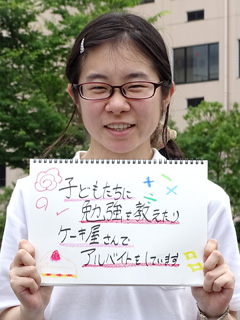 子どもたちに
勉強を教えたり
ケーキ屋さんで
アルバイトをしています